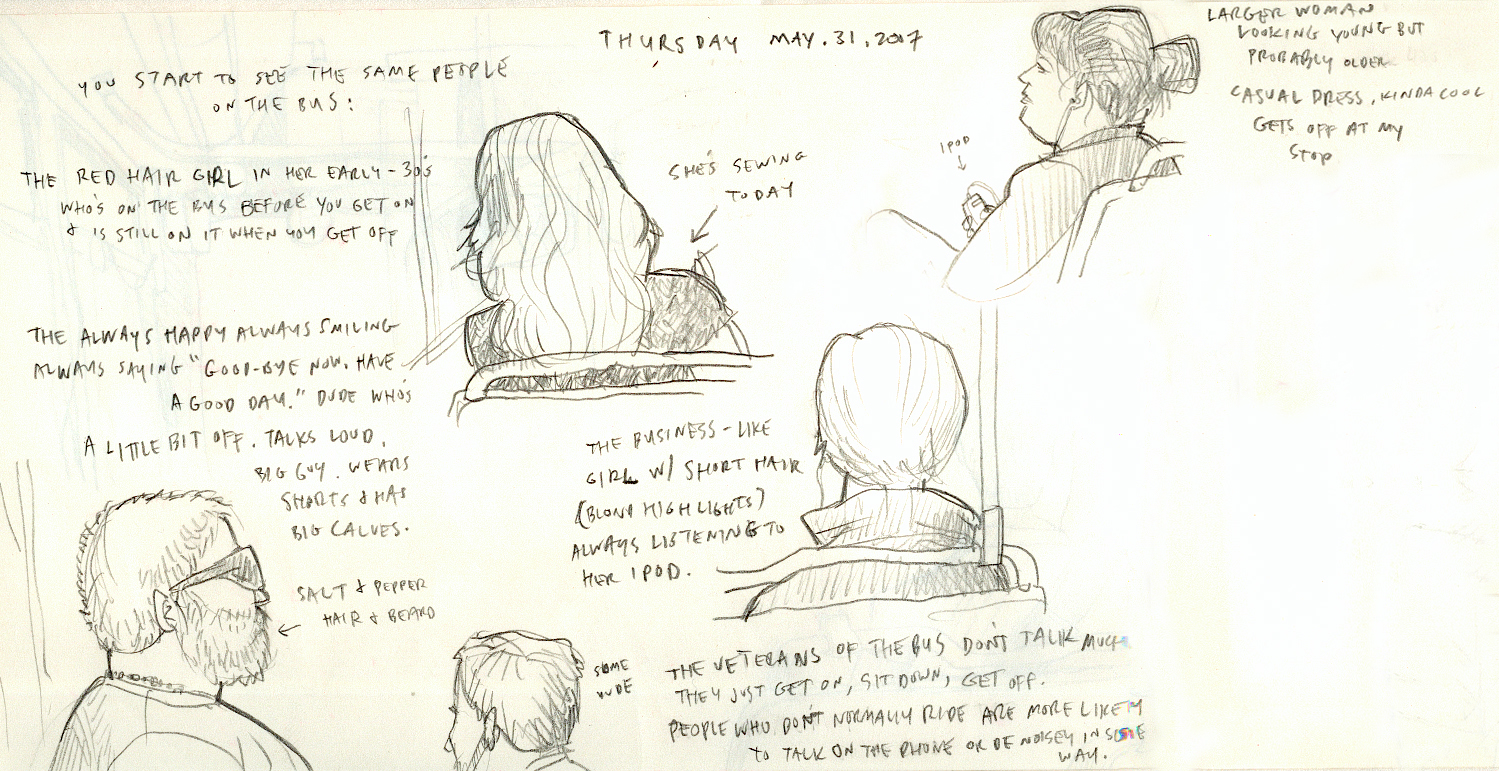 THURSDAY MAY. 31, 2007
YOU START TO SEE THE SAME PEOPLE
ON THE BUS:
THE RED HAIR GIRL IN HER EARLY-30'S
WHO'S ON THE BUS BEFORE YOU GET ON
& IS STILL ON IT WHEN YOU GET OFF
SHE'S SEWING
TODAY
IPOD
LARGER WOMAN
LOOKING YOUNG BUT
PROBABLY OLDER
CASUAL DRESS, KINDA COOL
GETS OFF AT MY
STOP
THE ALWAYS HAPPY ALWAYS SMILING
ALWAYS SAYING "GOOD-BYE NOW. HAVE
A GOOD DAY." DUDE WHO'S
A LITTLE BIT OFF. TALKS LOUD.
BIG GUY. WEARS
SHORTS & HAS
BIG CALVES.
SALT & PEPPER
HAIR & BEARD
THE BUSINESS-LIKE
GIRL W/ SHORT HAIR
(BLOND HIGHLIGHTS)
ALWAYS LISTENING TO
HER IPOD.
SOME
DUDE
THE VETERANS OF THE BUS DON'T TALK MUCH
THEY JUST GET ON, SIT DOWN, GET OFF.
PEOPLE WHO DON'T NORMALLY RIDE ARE MORE LIKELY
TO TALK ON THE PHONE OR BE NOISEY IN SOME
WAY.